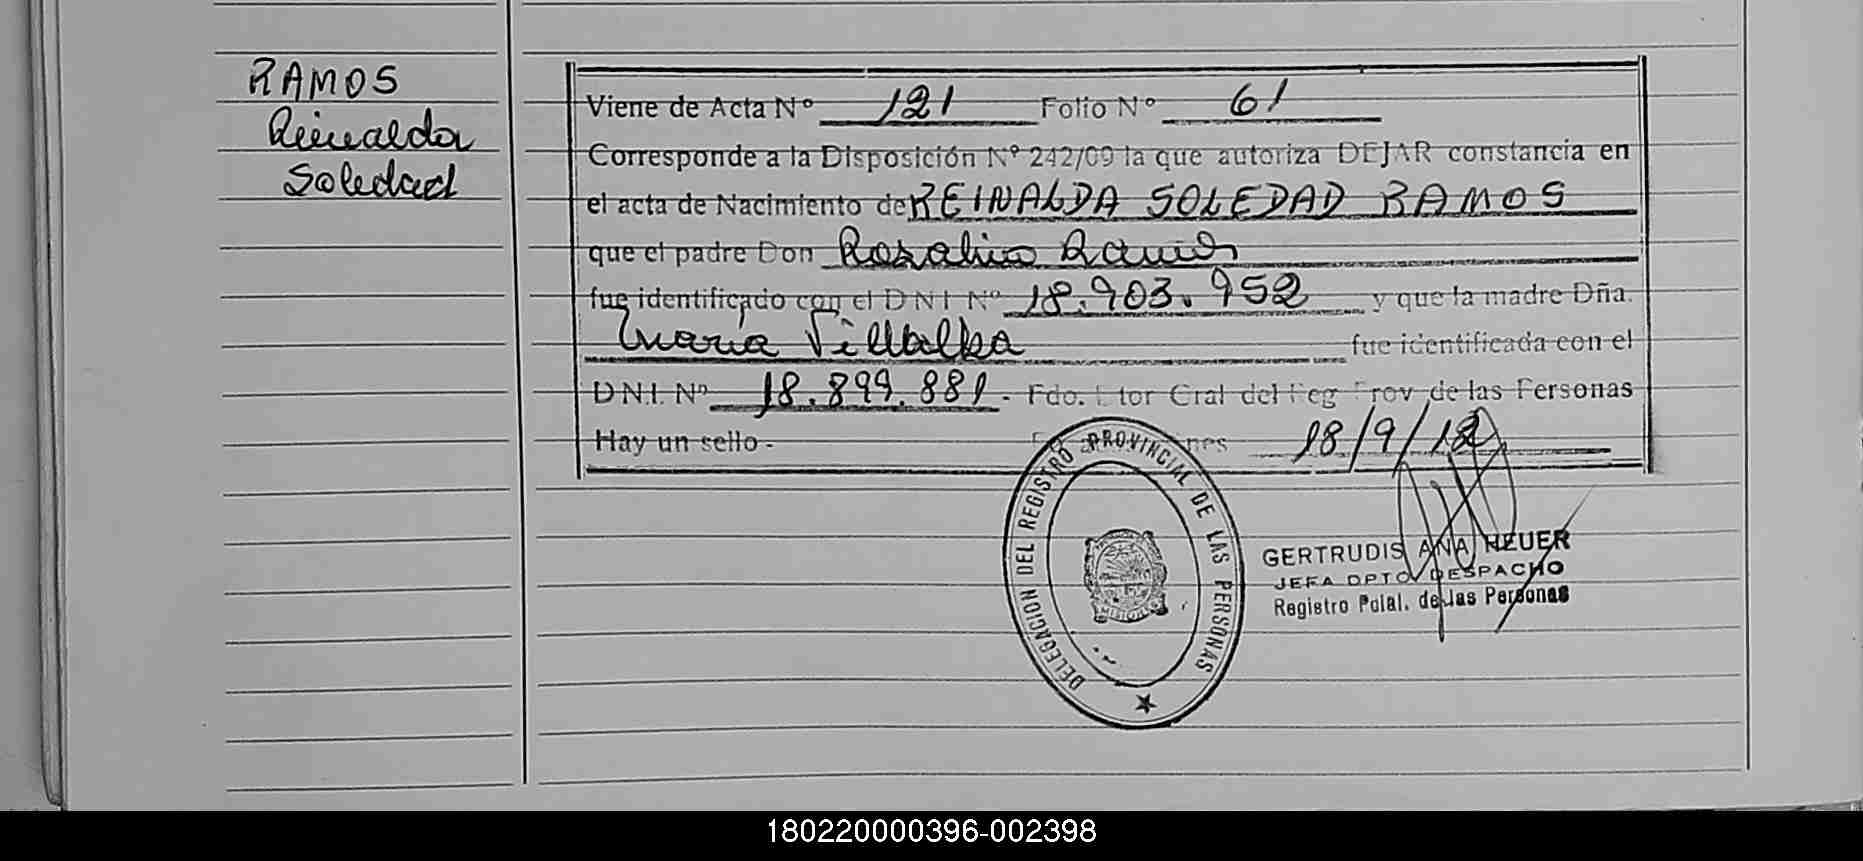 RAMOS
Reinalda
Soledad
Viene de Acta Nº 121 Folio Nº 61
Corresponde a la Disposición Nº 242/09 la que autoriza DEJAR constancia en
el acta de Nacimiento de REINALDA SOLEDAD RAMOS
que el padre Don Rosalino Ramos
fue identificado con el D N I Nº 18.903.952 y que la madre Dña.
María Villalba fue identificada con el
D N.I. Nº 18.899.881 - Fdo. Gral del Reg Prov de las Personas
Hay un sello - 18/9/12
DELEGACION DEL REGISTRO PROVINCIAL DE LAS PERSONAS
MISIONES
GERTRUDIS ANA HEUER
JEFA DPTO DESPACHO
Registro Pcial. de las Personas
180220000396-002398